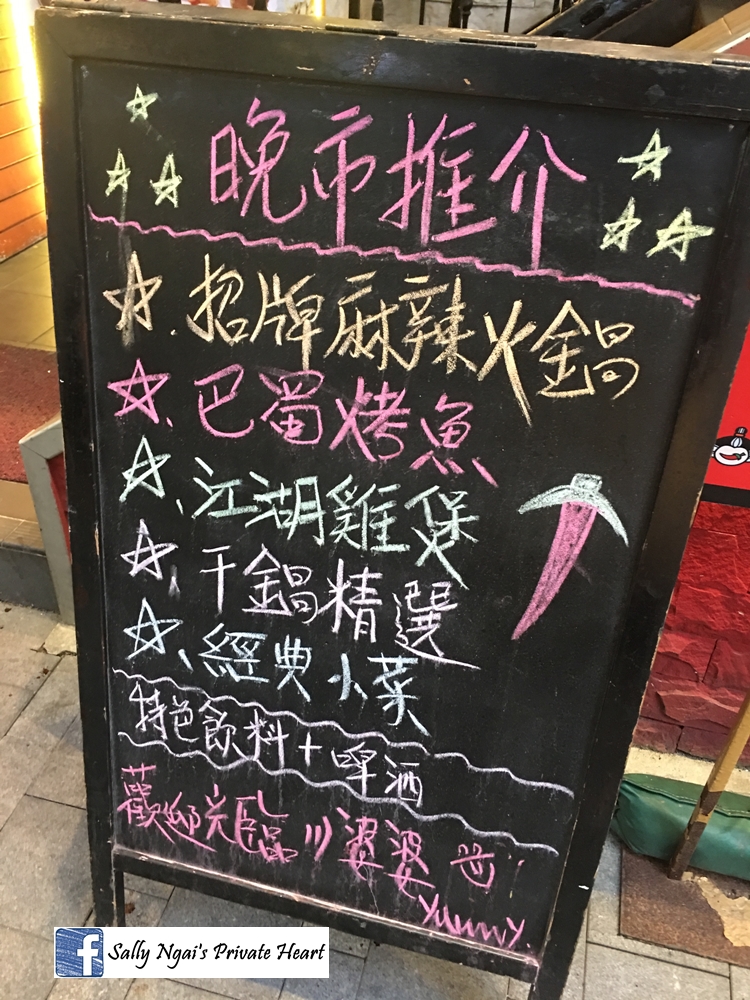 晚市推介
招牌麻辣火鍋
巴蜀烤魚
江湖雞煲
干鍋精選
經典小菜
特色飲料+啤酒
歡迎光臨川婆婆
yummy.
Sally Ngai's Private Heart